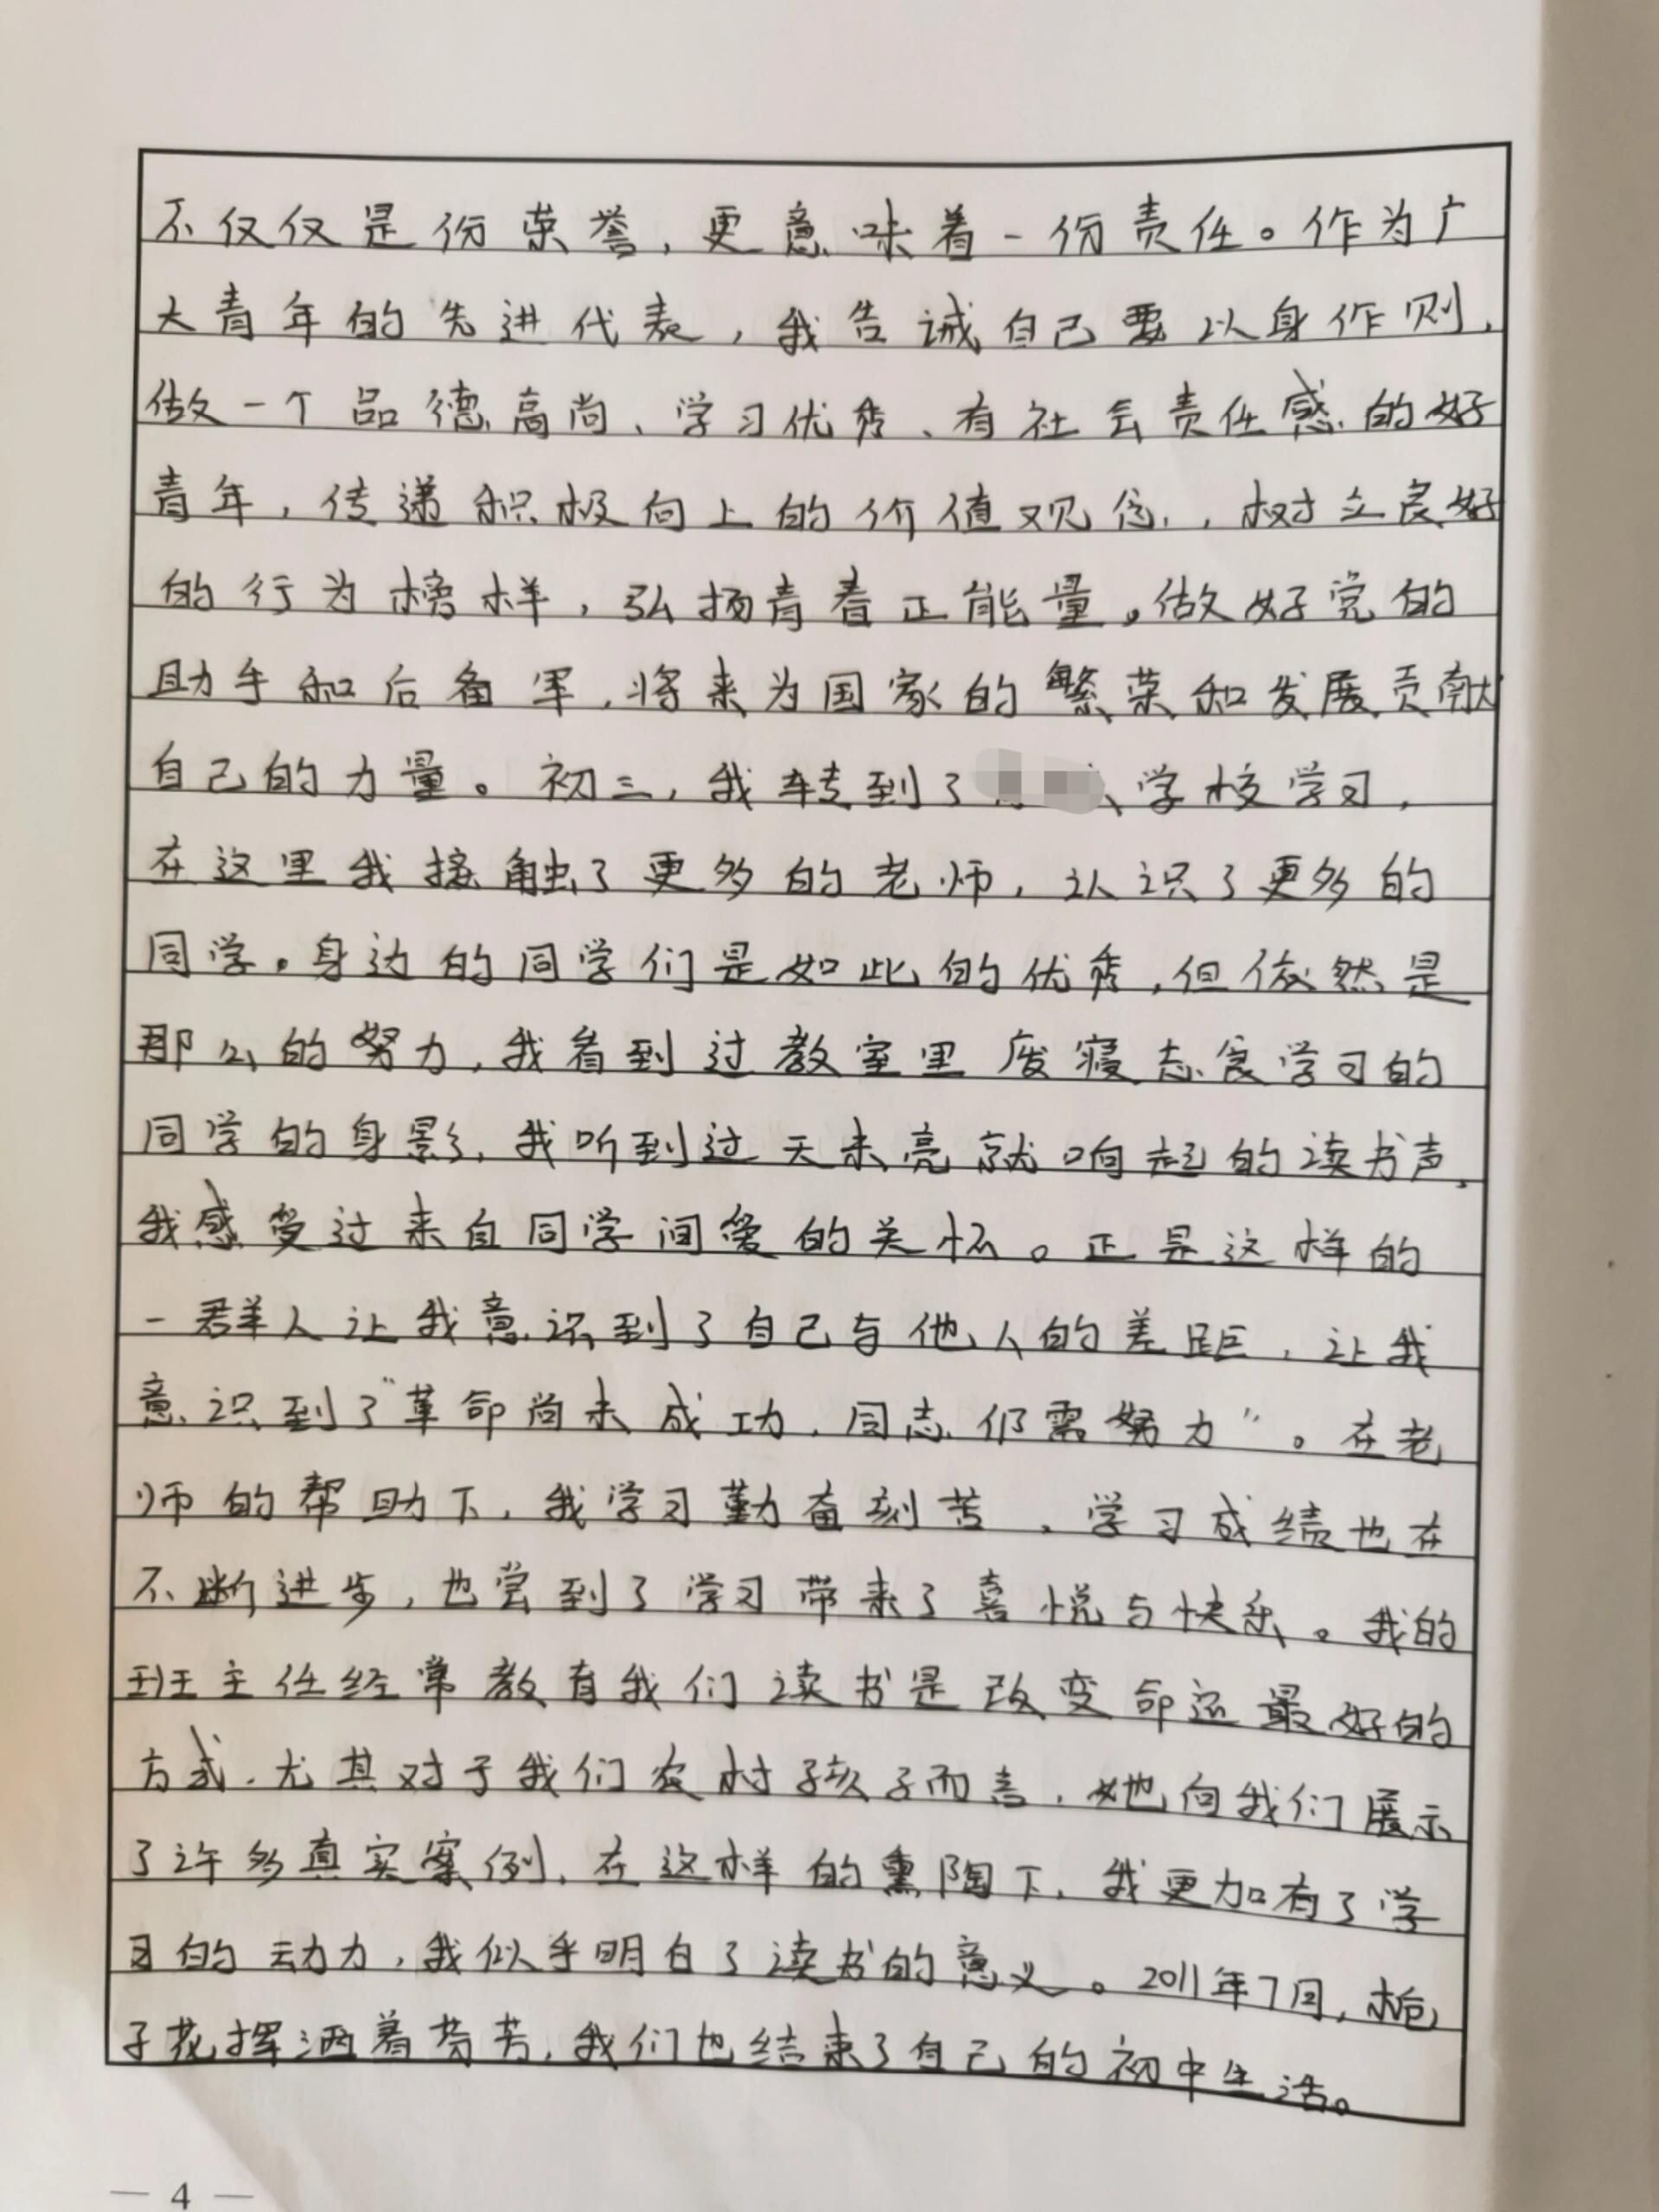 不仅仅是份荣誉，更意味着一份责任。作为广
大青年的先进代表，我告诫自己要以身作则，
做一个品德高尚、学习优秀、有社会责任感的好
青年，传递积极向上的价值观念，树立良好
的行为榜样，弘扬青春正能量。做好党的
助手和后备军，将来为国家的繁荣和发展贡献
自己的力量。初三，我转到了学校学习，
在这里我接触了更多的老师，认识了更多的
同学。身边的同学们是如此的优秀，但依然是
那么的努力，我看到过教室里废寝忘食学习的
同学的身影，我听到过天未亮就响起的读书声，
我感受过来自同学间爱的关怀。正是这样的
一群人让我意识到了自己与他人的差距，让我
意识到了“革命尚未成功，同志仍需努力”。在老
师的帮助下，我学习勤奋刻苦，学习成绩也在
不断进步，也尝到了学习带来了喜悦与快乐。我的
班主任经常教育我们读书是改变命运最好的
方式，尤其对于我们农村孩子而言，她向我们展示
了许多真实案例，在这样的熏陶下，我更加有了学
习的动力，我似乎明白了读书的意义。2011年7月，栀
子花挥洒着芬芳，我们也结束了自己的初中生活。
— 4 —